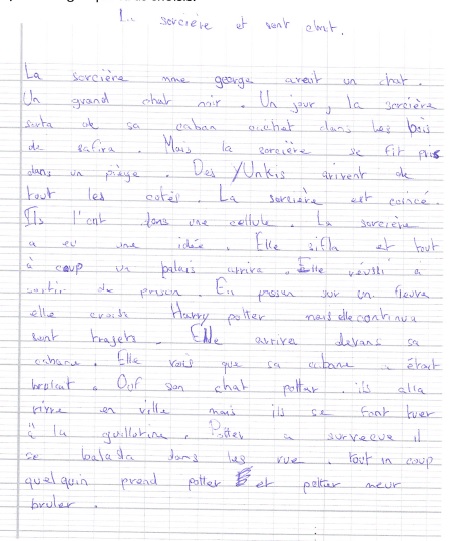 La sorcière et sont chat.
La sorcière nme george aveit un chat.
Un grand chat noir. Un jour, la sorcière
sorta de sa caban cachet dans les bois
de safira. Mais la sorcière se fit pris
dans un piège. Des YUnkis arivent de
tout les cotès. La sorcière est coincé.
Ils l'ont dans une cellule. La sorcière
a eu une idée. Elle sifla et tout
à coup un balais arriva. Elle réussi a
sortir de prison. En passen sur un fleuve
elle croisa Harry potter mais elle continua
sont trajets. Elle arriva devans sa
cabane. Elle vois que sa cabane a était
brulait. Ouf son chat potter. ils alla
vivre en ville mais ils se font tuer
à la guillotine. Potter a survecue il
se balada dans les rue. tout in coup
quelquin prend potter et potter meur
bruler.